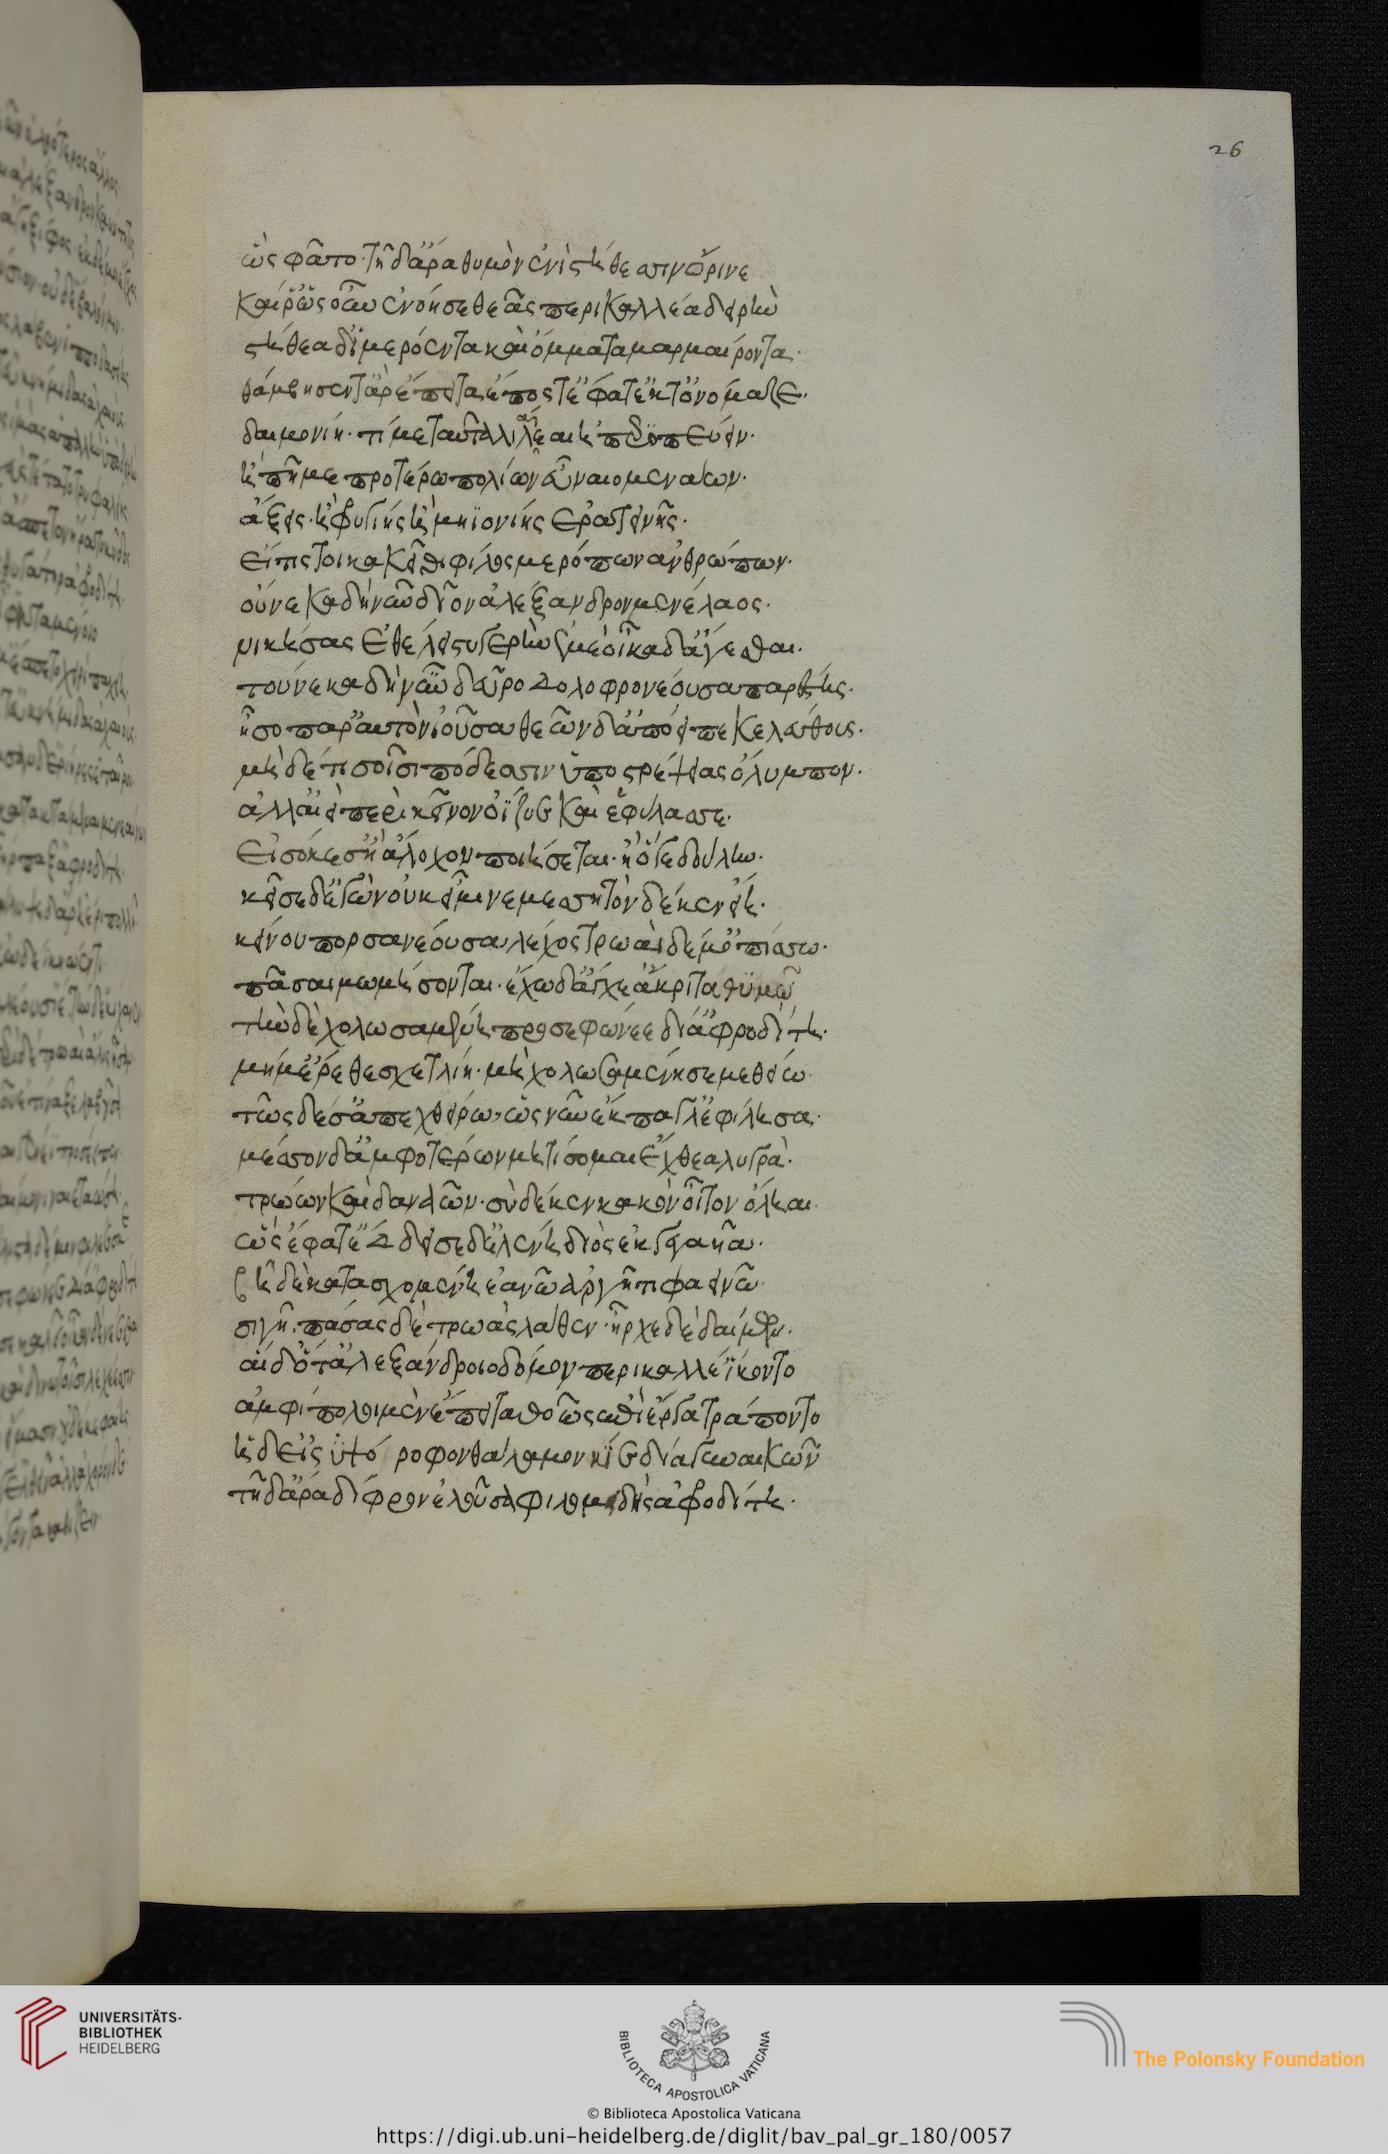 26
ὣς φάτο· τῆ δ' ἄρα θυμὸν ἐνὶ στήθεσσιν ὄρινε
καί ῥ' ὡς οὖν ἐνόησε θεᾶς περικαλλέα δειρὴν
στήθεα δ' ἱμερόεντα καὶ ὄμματα μαρμαίροντα·
θάμβησέν τ' ἂρ ἔπειτα ἔπος τ' ἔφατ' ἔκ τ' ὀνόμαζε·
δαιμονίη· τί με ταῦτα λιλαίεαι ἠπεροπεύειν·
ἦ πῆ με προτέρω πολίων εὖ ναιομενάων·
ἄξεις· ἢ φρυγίης ἢ μηϊονίης ἐρατεινῆς·
εἴ τίς τοι κακεῖθι φίλος μερόπων ἀνθρώπων·
οὕνεκα δὴ νῦν δῖον ἀλέξανδρον μενέλαος·
νικήσας ἐθέλει στυγερὴν ἐμὲ οἴκαδ' ἄγεσθαι·
τούνεκα δὴ νῦν δεῦρο δολοφρονέουσα παρέστης·
ἧσο παρ' αὐτὸν ἰοῦσα θεῶν δ' ἀπόειπε κελεύθους·
μὴδ' ἔτι σοῖσι πόδεσσιν ὑποστρέψειας ὄλυμπον·
ἀλλ' αἰεὶ περὶ κεῖνον ὀΐζυε καὶ ἑ φύλασσε·
εἰσόκε σ' ἢ ἄλοχον ποιήσεται· ἢ ὅγε δούλην·
κεῖσε δ' ἐγὼν οὐκ εἶμι νεμεσσητὸν δέ κεν εἴη·
κείνου πορσανέουσα λέχος τρωαὶ δέ μ' ὀπίσσω·
πᾶσαι μωμήσονται· ἔχω δ' ἄχε' ἄκριτα θυμῶ
τὴν δὲ χολωσαμένη προσεφώνεε δῖ' ἀφροδίτη·
μή μ' ἔρεθε σχετλίη· μὴ χολωσαμένη σε μεθείω
τὼς δέ σ' ἀπεχθείρω, ὡς νῦν ἔκπαγλ' ἐφίλησα·
μέσσον δ' ἀμφοτέρων μητίσομαι ἔχθεα λυγρὰ·
τρώων καὶ δαναῶν· σὺ δέ κεν κακὸν οἶτον ὄληαι
ὣς ἔφατ' ἔδδεισε δ' ἑλένη διὸς ἐκγεγαυῖα·
βῆ δὲ κατασχομένη ἑανῶ ἀργῆτι φαεινῶ
σιγῆ, πάσας δὲ τρωὰς λάθεν· ἦρχε δὲ δαίμων·
αἱ δ' ὅτ' ἀλεξάνδροιο δόμον περικαλλέ' ἵκοντο
ἀμφίπολοι μὲν ἔπειτα θοῶς ἐπὶ ἔργα τράποντο
ἣ δ' εἰς ὑψόροφον θάλαμον κίε δῖα γυναικῶν
τῆ δ' ἄρα δίφρον ἑλοῦσα φιλομειδὴς ἀφροδίτη·
UNIVERSITÄTS-
BIBLIOTHEK
HEIDELBERG
BIBLIOTECA APOSTOLICA VATICANA
The Polonsky Foundation
© Biblioteca Apostolica Vaticana
https://digi.ub.uni-heidelberg.de/diglit/bav_pal_gr_180/0057